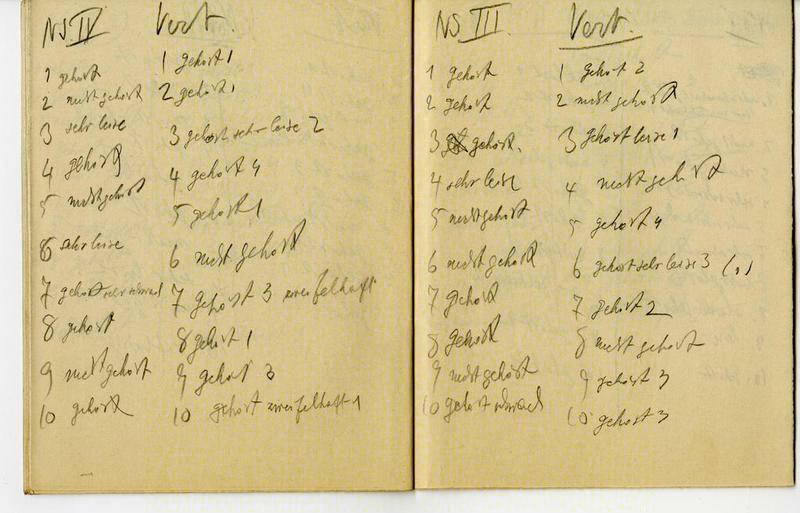 NS IV
1 gehört
2 nicht gehört
3 sehr leise
4 gehört
5 nicht gehört
6 sehr leise
7 gehört sehr schwach
8 gehört
9 nicht gehört
10 gehört
Vert.
1 gehört 1
2 gehört 1
3 gehört sehr leise 2
4 gehört 4
5 gehört 1
6 nicht gehört
7 gehört 3 zweifelhaft
8 gehört 1
9 gehört 3
10 gehört zweifelhaft 1
NS III.
1 gehört
2 gehört
3 gehört.
4 sehr leise
5 nicht gehört
6 nicht gehört
7 gehört
8 gehört
9 nicht gehört
10 gehört schwach
Vert.
1 gehört 2
2 nicht gehört
3 gehört leise 1
4 nicht gehört
5 gehört 4
6 gehört sehr leise 3 (1)
7 gehört 2
8 nicht gehört
9 gehört 3
10 gehört 3